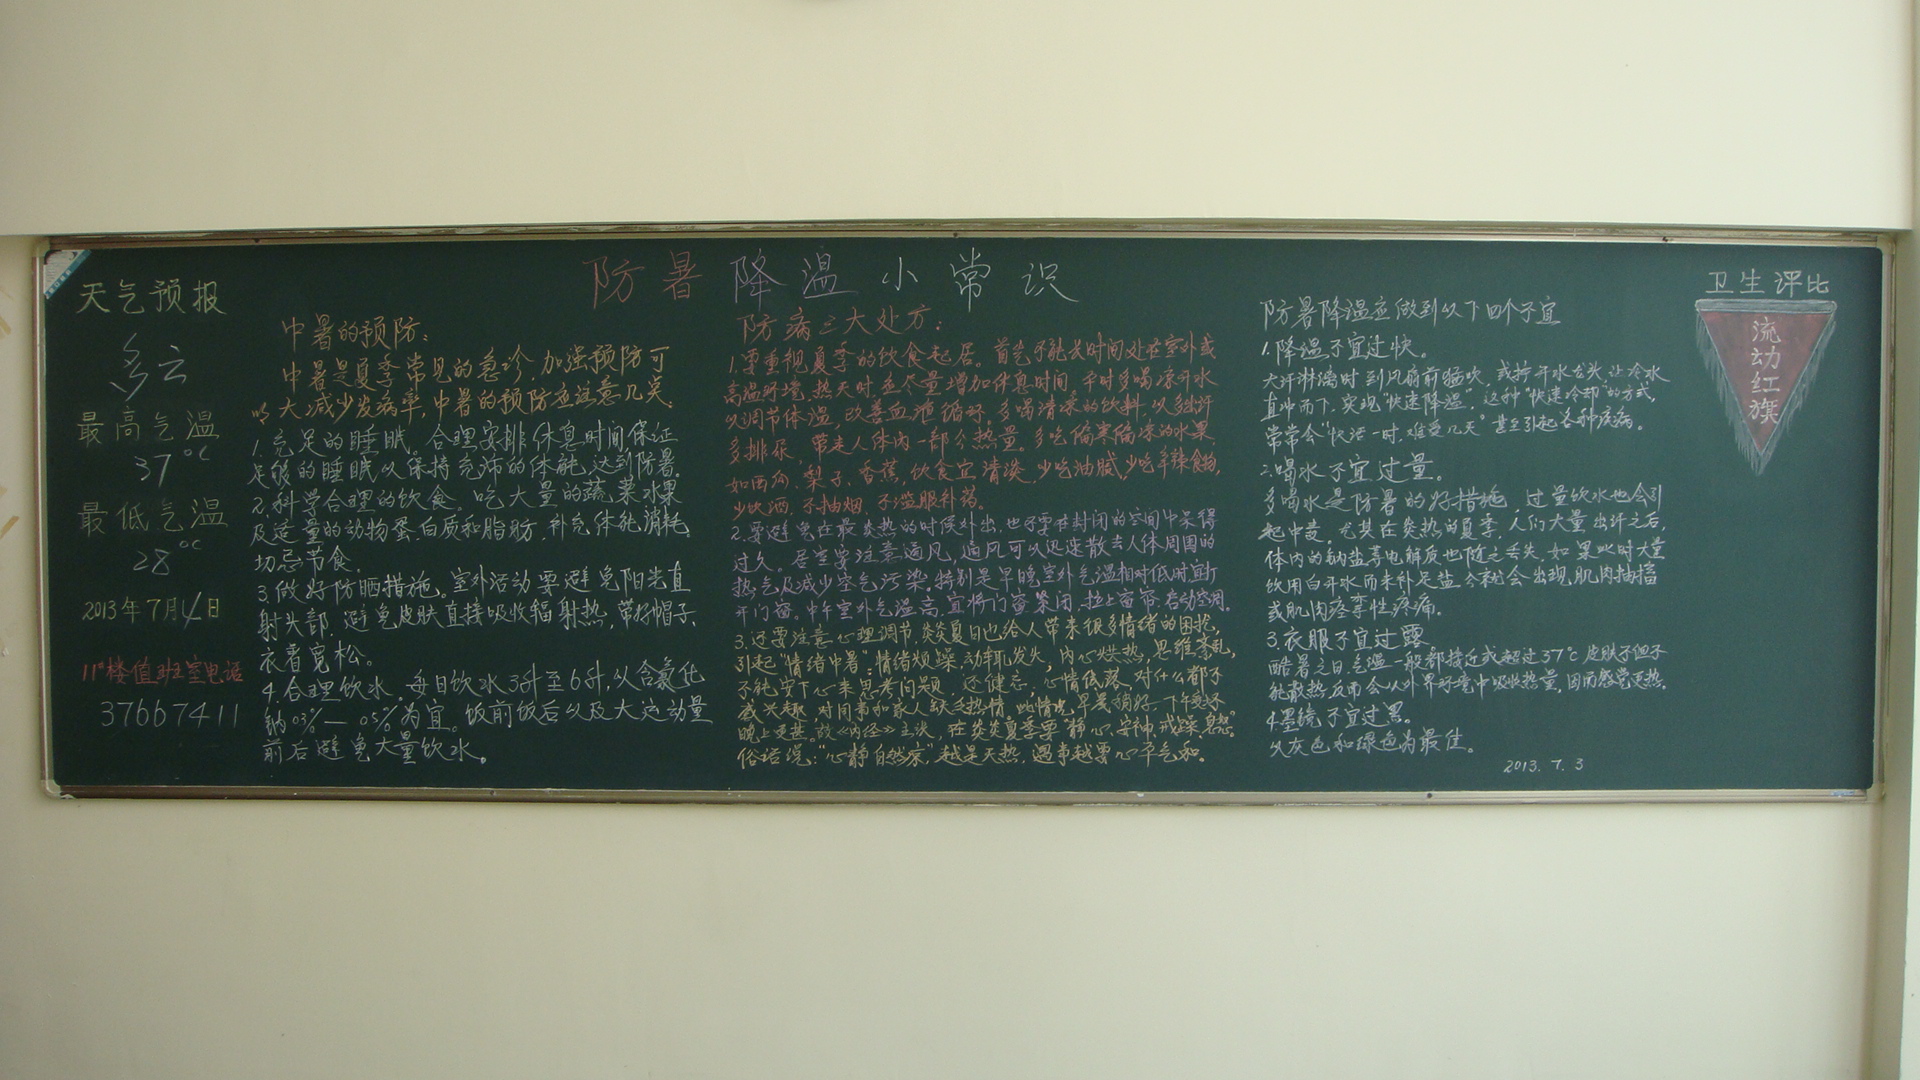 防暑降温小常识
天气预报
多云
最高气温
37℃
最低气温
28℃
2013年7月4日
11#楼值班室电话
37667411
中暑的预防:
中暑是夏季常见的急诊,加强预防可
以大大减少发病率,中暑的预防应注意几点:
1.充足的睡眠。合理安排休息时间,保证
足够的睡眠以保持充沛的体能,达到防暑。
2.科学合理的饮食。吃大量的蔬菜水果
及适量的动物蛋白质和脂肪,补充体能消耗。
切忌节食。
3.做好防晒措施。室外活动要避免阳光直
射头部,避免皮肤直接吸收辐射热,带好帽子、
衣着宽松。
4.合理饮水。每日饮水3升至6升,以含氯化
钠0.3%—0.5%为宜。饭前饭后以及大运动量
前后避免大量饮水。
防病三大处方:
1.要重视夏季的饮食起居。首先不能长时间处在室外或
高温环境,热天时,应尽量增加休息时间,平时多喝凉开水
以调节体温,改善血液循环。多喝清凉的饮料,以多出汗
多排尿,带走人体内一部分热量。多吃偏寒偏凉的水果,
如西瓜、梨子、香蕉,饮食宜清淡,少吃油腻,少吃辛辣食物,
少饮酒,不抽烟,不滥服补药。
2.要避免在最炎热的时候外出,也不要在封闭的空间中呆得
过久。居室要注意通风,通风可以迅速散去人体周围的
热气及减少空气污染。特别是早晚室外气温相对低时,宜打
开门窗。中午室外气温高,宜将门窗紧闭,拉上窗帘,启动空调。
3.还要注意心理调节,炎炎夏日也给人带来很多情绪的困扰,
引起“情绪中暑”:情绪烦躁,动辄发火,内心烘热,思维紊乱,
不能安下心来思考问题,还健忘,心情低落,对什么都不
感兴趣,对同事和家人缺乏热情,此情况,早晨稍好,下午变坏
晚上更甚。故《内经》主张,在炎炎夏季要“静心、安神、戒躁、息怒。”
俗话说:“心静自然凉”,越是天热,遇事越要心平气和。
防暑降温应做到以下四个不宜
1.降温不宜过快。
大汗淋漓时到风扇前猛吹,或拧开水龙头,让冷水
直冲而下,实现“快速降温”,这种“快速冷却”的方式,
常常会“快活一时,难受几天”甚至引起各种疾病。
2.喝水不宜过量。
多喝水是防暑的好措施,过量饮水也会引
起中暑。尤其在炎热的夏季,人们大量出汗之后,
体内的钠盐等电解质也随之丢失,如果此时大量
饮用白开水而未补足盐分,就会出现肌肉抽搐
或肌肉痉挛性疼痛。
3.衣服不宜过露
酷暑之日,气温一般都接近或超过37℃皮肤不但不
能散热,反而会从外界环境中吸收热量,因而感觉更热。
4.墨镜不宜过黑。
以灰色和绿色为最佳。
2013.7.3
卫生评比
流动红旗